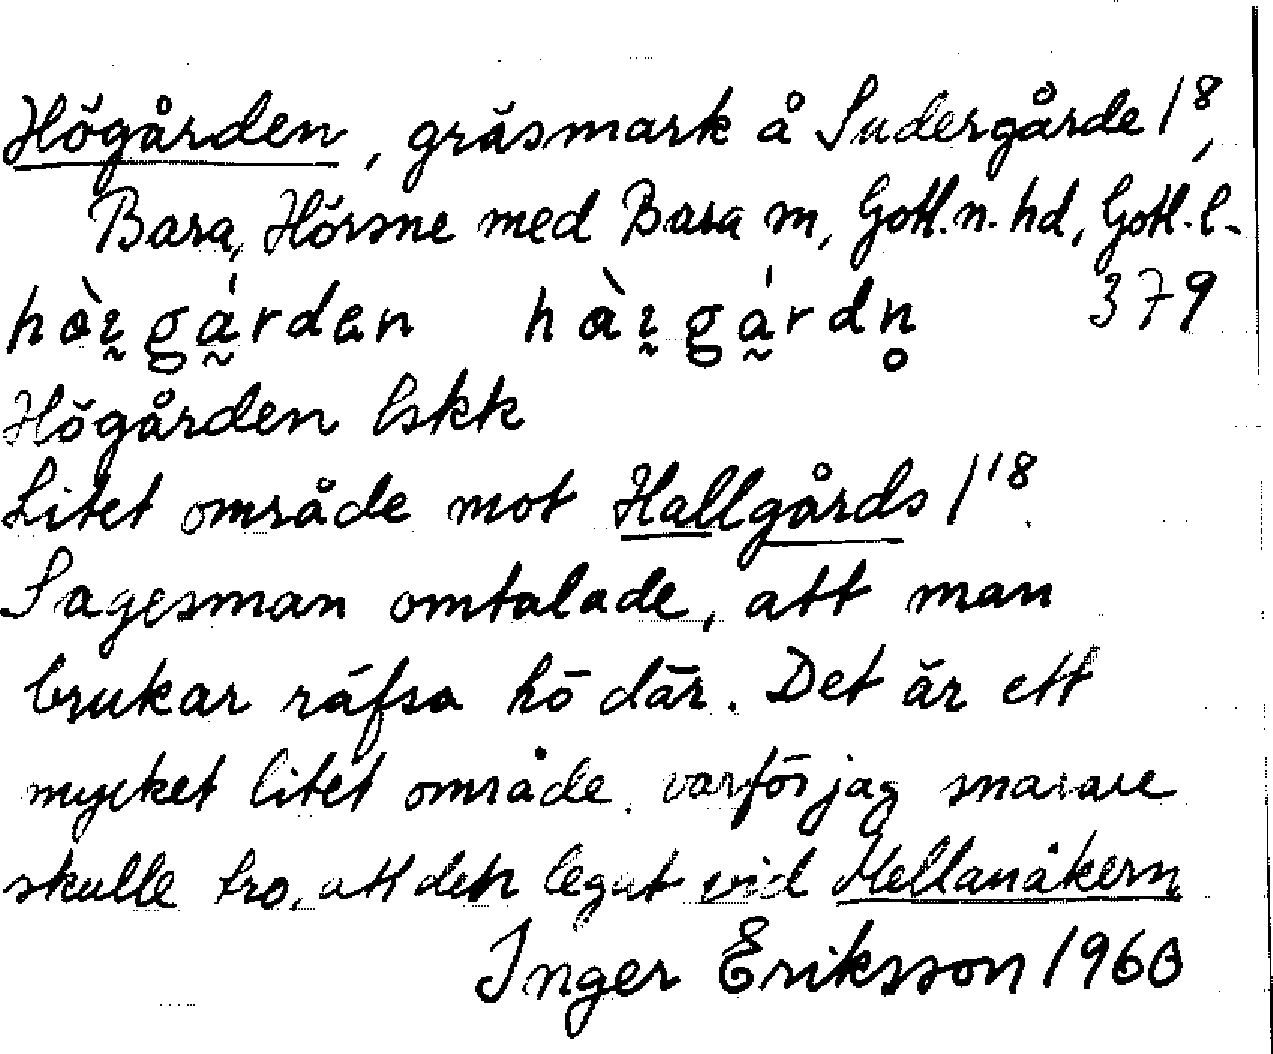 Högården, gräsmark å Sudergårde 1⁸,
Bara, Hörsne med Bara sn, Gotl. n. hd, Gotl. l.
379
Högården Eskk
Litet område mot Hallgårds 1¹⁸.
Sagesman omtalade, att man
brukar räfsa hö där. Det är ett
mycket litet område, varför jag snarare
skulle tro, att den legat vid Mellanåkern
Inger Eriksson 1960